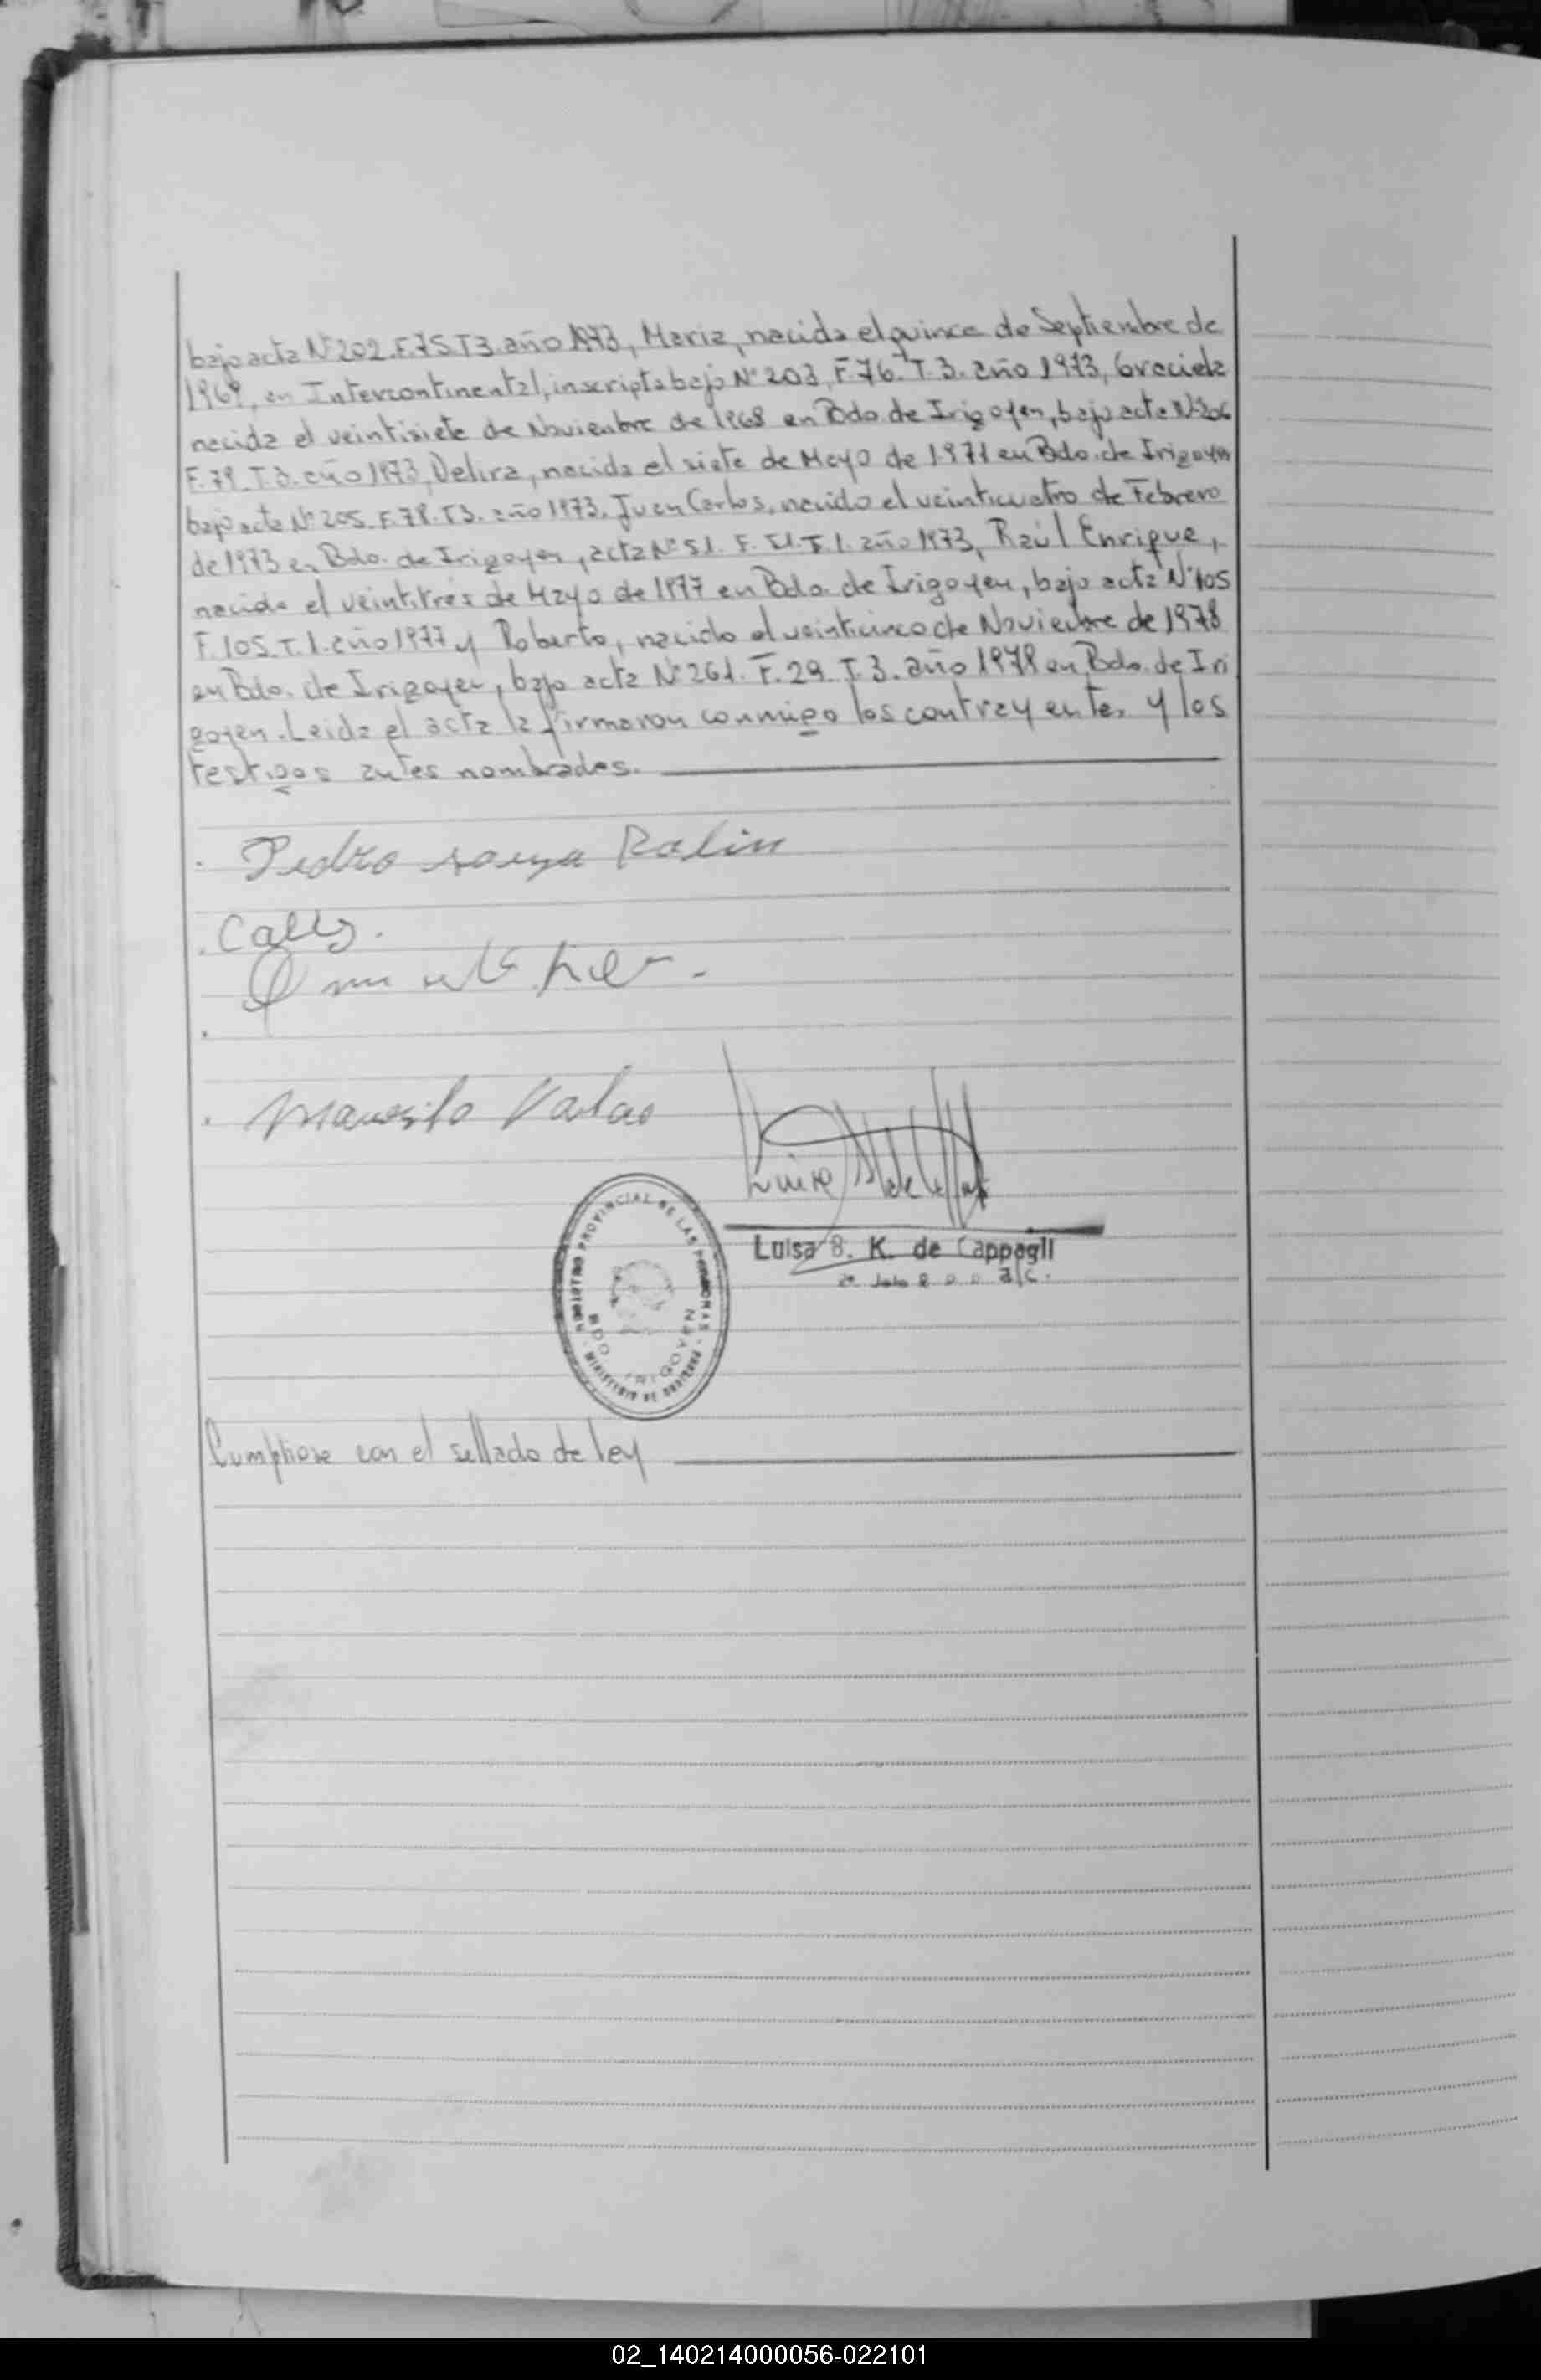 bajo acta Nº 202. F. 75. T 3. año 1973, Maria, nacida el quince de Septiembre de
1969, en Intercontinental, inscripta bajo Nº 203, F. 76. T. 3. año 1973, Graciela
nacida el veintisiete de Noviembre de 1968 en Bdo de Irigoyen, bajo acta Nº 206
F. 79. T. 3. año 1973, Delira, nacida el siete de Mayo de 1971 en Bdo. de Irigoyen
bajo acta Nº 205. F. 78. T 3. año 1973. Juan Carlos, nacido el veinticuatro de Febrero
de 1973 en Bdo. de Irigoyen, acta Nº 51. F. 51. T. 1. año 1973, Raúl Enrique,
nacido el veintitres de Mayo de 1977 en Bdo. de Irigoyen, bajo acta Nº 105
F. 105. T. 1. año 1977 y Roberto, nacido el veinticinco de Noviembre de 1978
en Bdo. de Irigoyen, bajo acta Nº 261. F. 29. T. 3. año 1978 en Bdo. de Iri
goyen. Leida el acta la firmaron conmigo los contrayentes y los
testigos antes nombrados.
Pedro souza Ralin
Manosito
Luisa B. K. de Cappagli
a/c.
REGISTRO PROVINCIAL DE LAS PERSONAS
BDO. IRIGOYEN
MINISTERIO DE GOBIERNO
Cumpliose con el sellado de ley
02_140214000056-022101